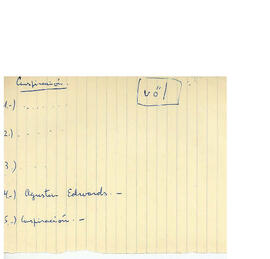 Conspiración.
vó!
1.-) . . . . . . .
2.) . . . .
3) . . . .
4.-) Agustin Edwards. -
5.-) Conspiración. -